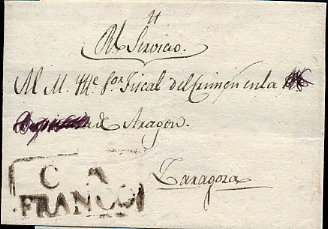 Rl Servicio.
Al M. Ille Sor Fiscal del Crimen en la
de Aragon.
Zaragoza
C A
FRANCO